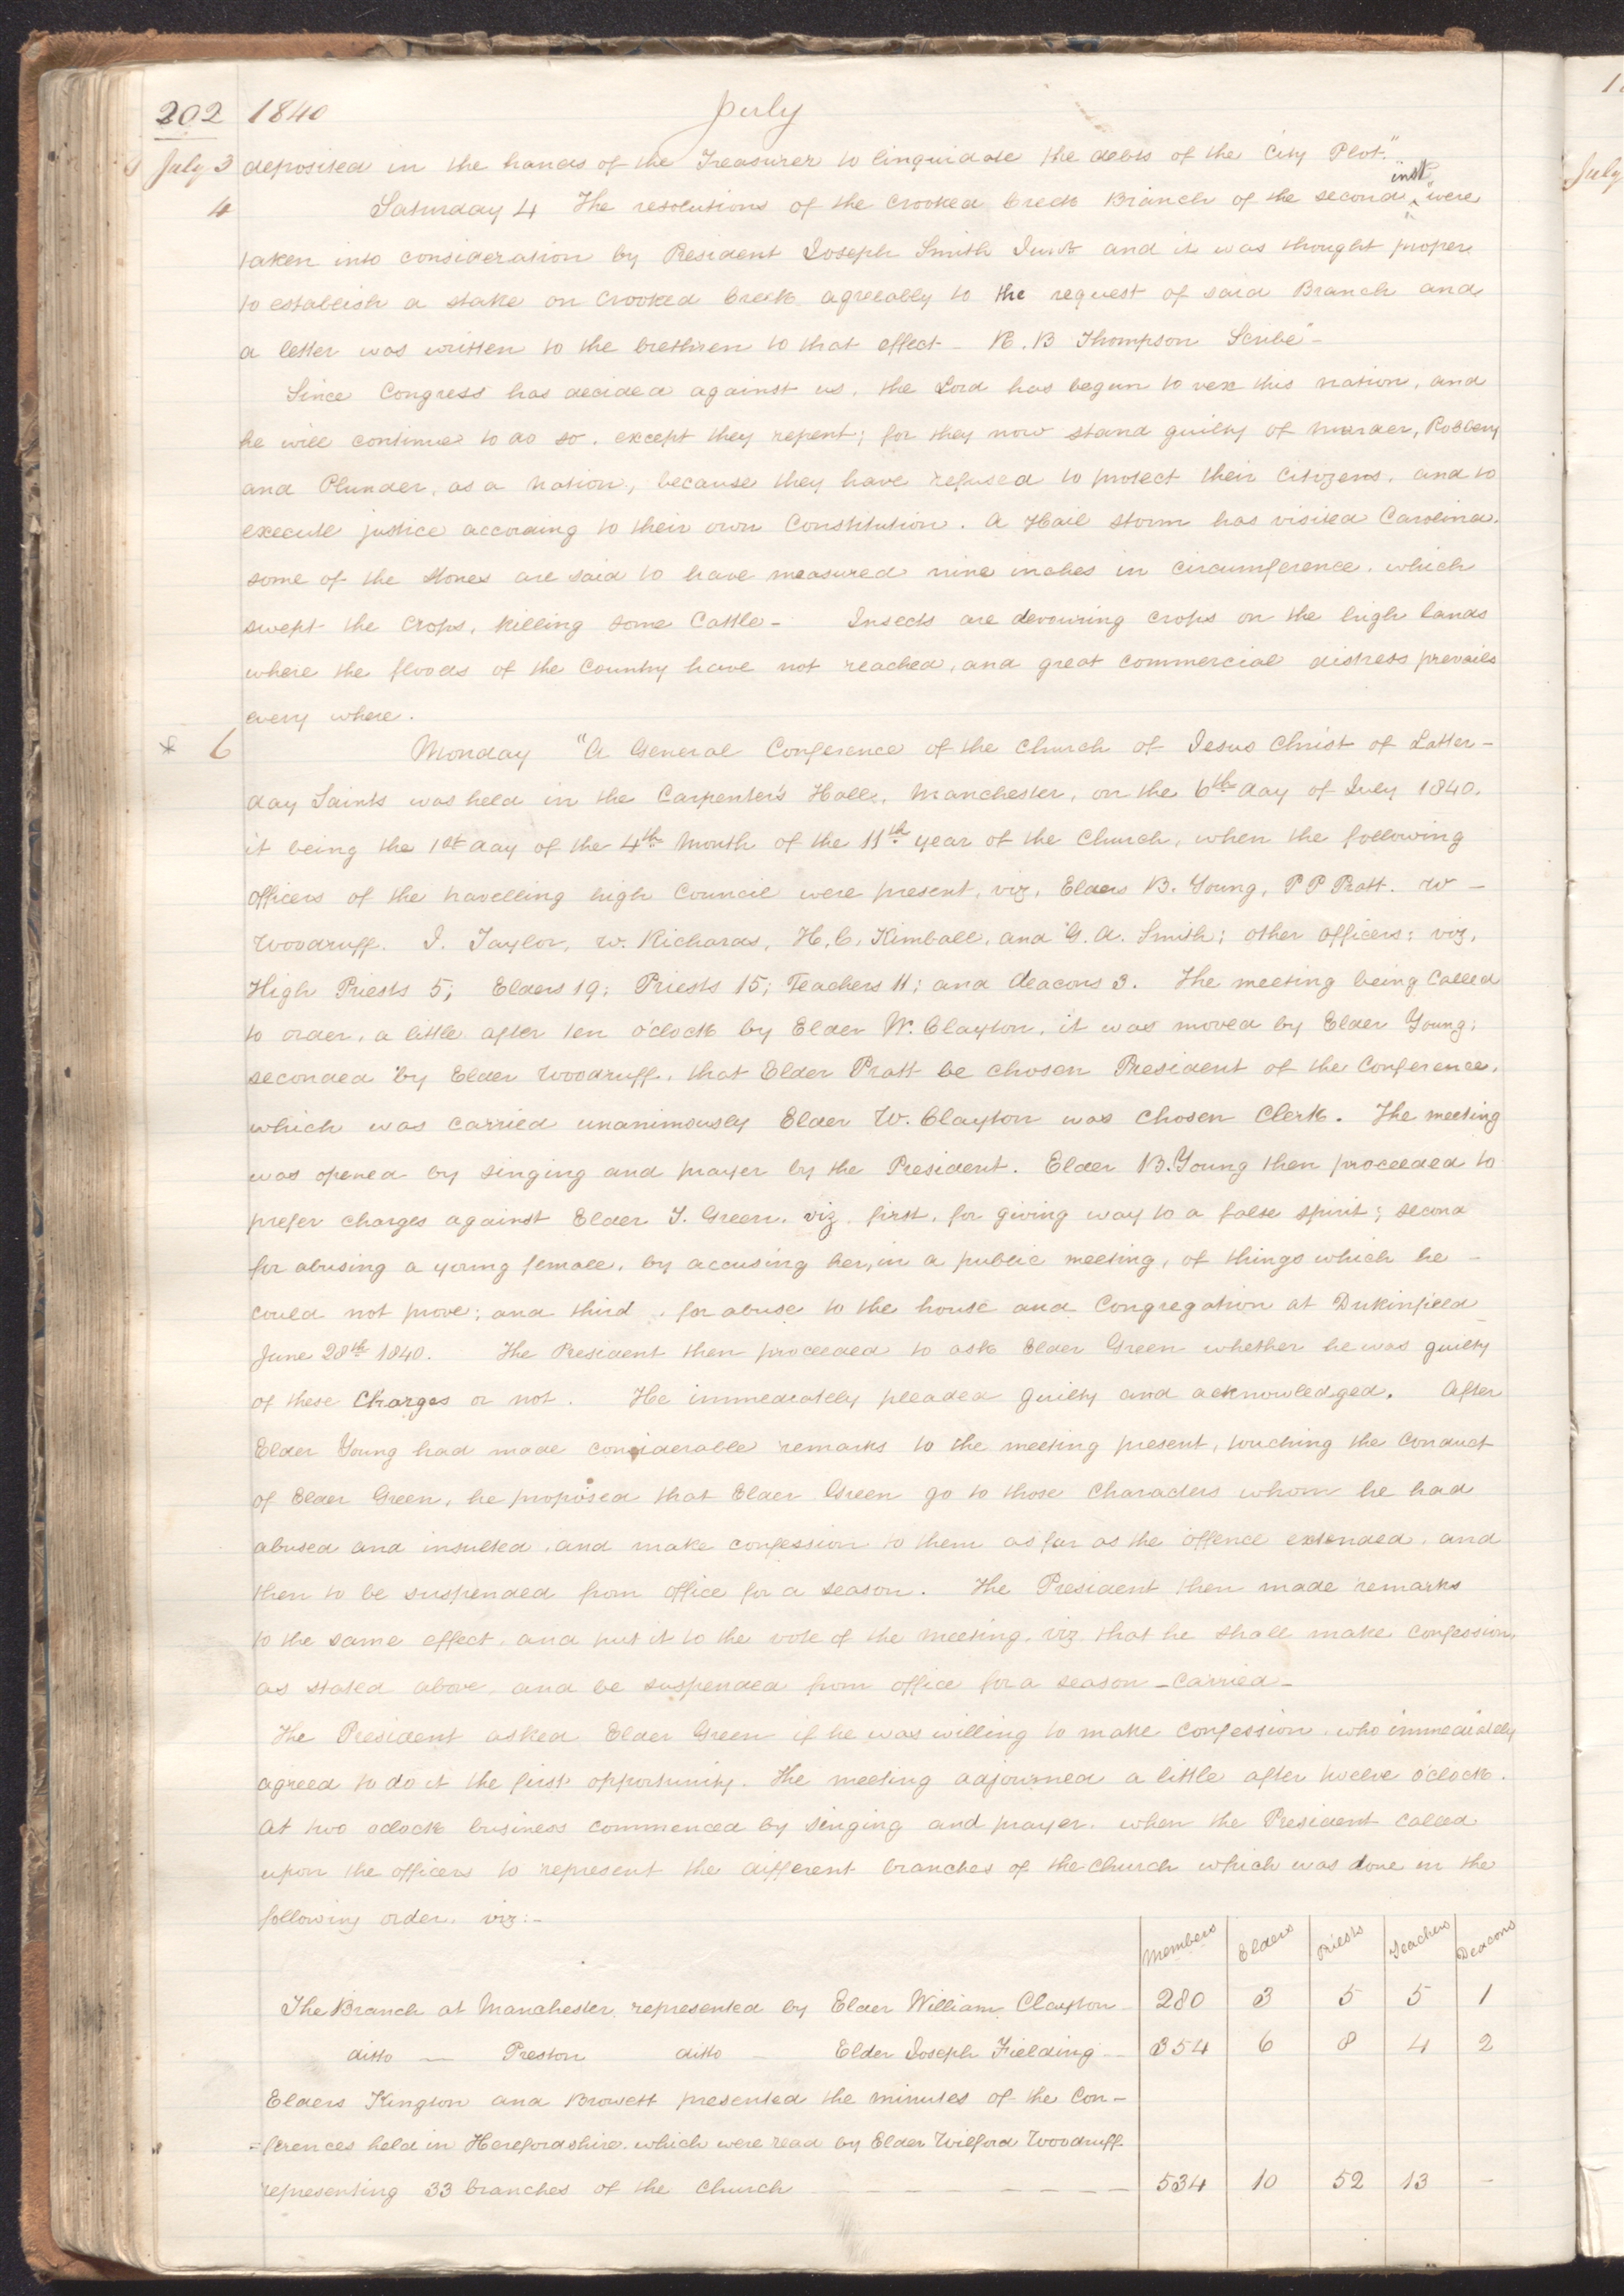 202 1840 July
July 3 deposited in the hands of the Treasurer to linquidate the debts of the City Plot."
inst
4 Saturday 4 The resolutions of the Crooked Creek Branch of the second ^ were
taken into consideration by President Joseph Smith Junr and it was thought proper
to establish a stake on Crooked Creek agreeably to the request of said Branch and
a letter was written to the brethren to that effect – R. B Thompson Scribe" –
Since Congress has decided against us, the Lord has begun to vex this nation, and
he will continue to do so, except they repent; for they now stand guilty of Murder, Robbery
and Plunder, as a Nation, because they have refused to protect their Citizens, and to
execute justice according to their own Constitution. A Hail storm has visited Carolina.
some of the stones are said to have measured nine inches in circumference, which
swept the Crops, killing some Cattle – Insects are devouring crops on the high lands
where the floods of the Country have not reached, and great commercial distress prevails
every where.
* 6 Monday "A General Conference of the Church of Jesus Christ of Latter–
day Saints was held in the Carpenter's Hall, Manchester, on the 6th day of July 1840,
it being the 1st day of the 4th Month of the 11th year of the Church, when the following
officers of the travelling high Council were present, viz, Elders B. Young, P P Pratt. W –
Woodruff. J. Taylor, W. Richards, H, C, Kimball, and G. A. Smith; other officers; viz,
High Priests 5; Elders 19; Priests 15; Teachers 11; and Deacons 3. The meeting being Called
to order, a little after ten o'clock by Elder W. Clayton, it was moved by Elder Young;
seconded by Elder Woodruff, that Elder Pratt be chosen President of the Conference,
which was carried unanimously Elder W. Clayton was Chosen Clerk. The meeting
was opened by singing and prayer by the President. Elder B. Young then proceeded to
prefer charges against Elder T. Green, viz. first, for giving way to a false spirit; second
for abusing a young female, by accusing her, in a public meeting, of things which he –
could not prove; and third, for abuse to the house and Congregation at Dukinfield
June 28th 1840. The President then proceeded to ask Elder Green whether he was guilty
of these Charges or not. He immediately pleaded guilty and acknowledged. After
Elder Young had made considerable remarks to the meeting present, touching the Conduct
of Elder Green, he proposed that Elder Green go to those Characters whom he had
abused and insulted, and make confession to them as far as the offence extended, and
then to be suspended from office for a season. The President then made remarks
to the same effect, and put it to the vote of the Meeting, viz. that he shall make Confession,
as stated above, and be suspended from office for a season – Carried –
The President asked Elder Green if he was willing to make confession, who immediately
agreed to do it the first opportunity. The meeting adjourned a little after twelve o'clock.
At two oclock business commenced by singing and prayer, when the President called
upon the officers to represent the different branches of the Church which was done in the
following order, viz:–
Members Elders Priests Teachers Deacons
The Branch at Manchester represented by Elder William Clayton 280 3 5 5 1
ditto — Preston ditto – Elder Joseph Fielding – 354 6 8 4 2
Elders Kington and Browett presented the minutes of the Con–
=ferences held in Herefordshire, which were read by Elder Wilford Woodruff
representing 33 branches of the Church – – – – – – – 534 10 52 13 –
July